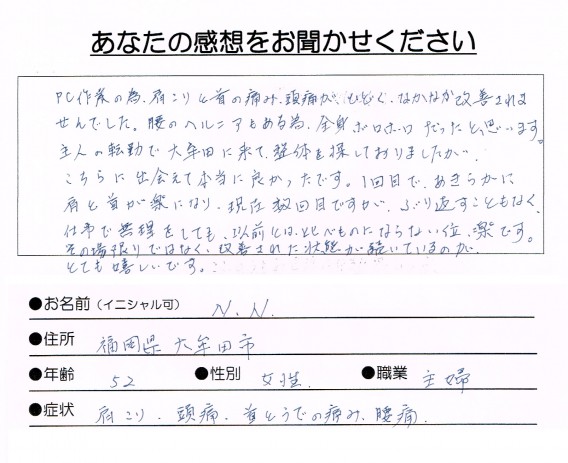 あなたの感想をお聞かせください
PC作業の為、肩こりと首の痛み、頭痛がひどく、なかなか改善されま
せんでした。腰のヘルニアもある為、全身ボロボロだったと思います。
主人の転勤で大牟田に来て、整体を探しておりましたが、
こちらに出会えて本当に良かったです。1回目で、あきらかに
肩と首が楽になり、現在数回目ですが、ぶり返すこともなく、
仕事で無理をしても、以前とは、比べものにならない位、楽です。
その場限りではなく、改善された状態が続いているのが、
とても嬉しいです。
●お名前（イニシャル可） N.N.
●住所 福岡県大牟田市
●年齢 52 ●性別 女性. ●職業 主婦
●症状 肩こり、頭痛、首とうでの痛み、腰痛.